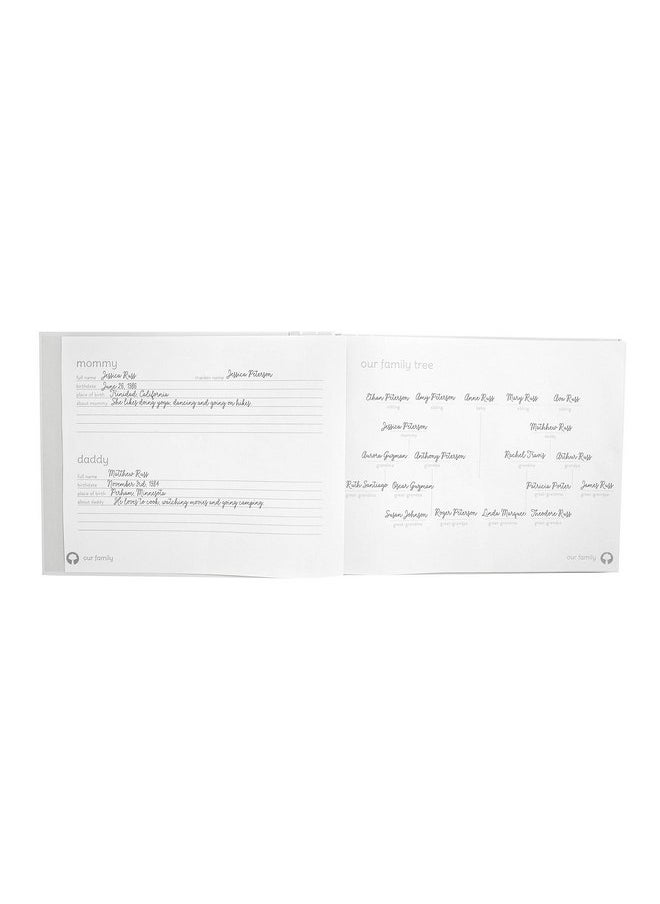 mommy
full name Jessica Russ maiden name Jessica Peterson
birthdate June 26, 1986
place of birth Trinidad, California
about mommy She likes doing yoga, dancing and going on hikes
daddy
full name Matthew Russ
birthdate November 3rd, 1984
place of birth Perham, Minnesota
about daddy He loves to cook, watching movies and going camping
our family
our family tree
Ethan Peterson Amy Peterson Anne Russ Mary Russ Ava Russ
sibling sibling baby sibling sibling
Jessica Peterson Mathhew Russ
mommy daddy
Aurora Guzman Anthony Peterson Rachel Travis Arthur Russ
grandma grandpa grandma grandpa
Ruth Santiago Oscar Guzman Patricia Porter James Russ
great-grandma great-grandpa great-grandma great-grandpa
Susan Johnson Roger Peterson Linda Marquez Theodore Russ
great-grandma great-grandpa great-grandma great-grandpa
our family